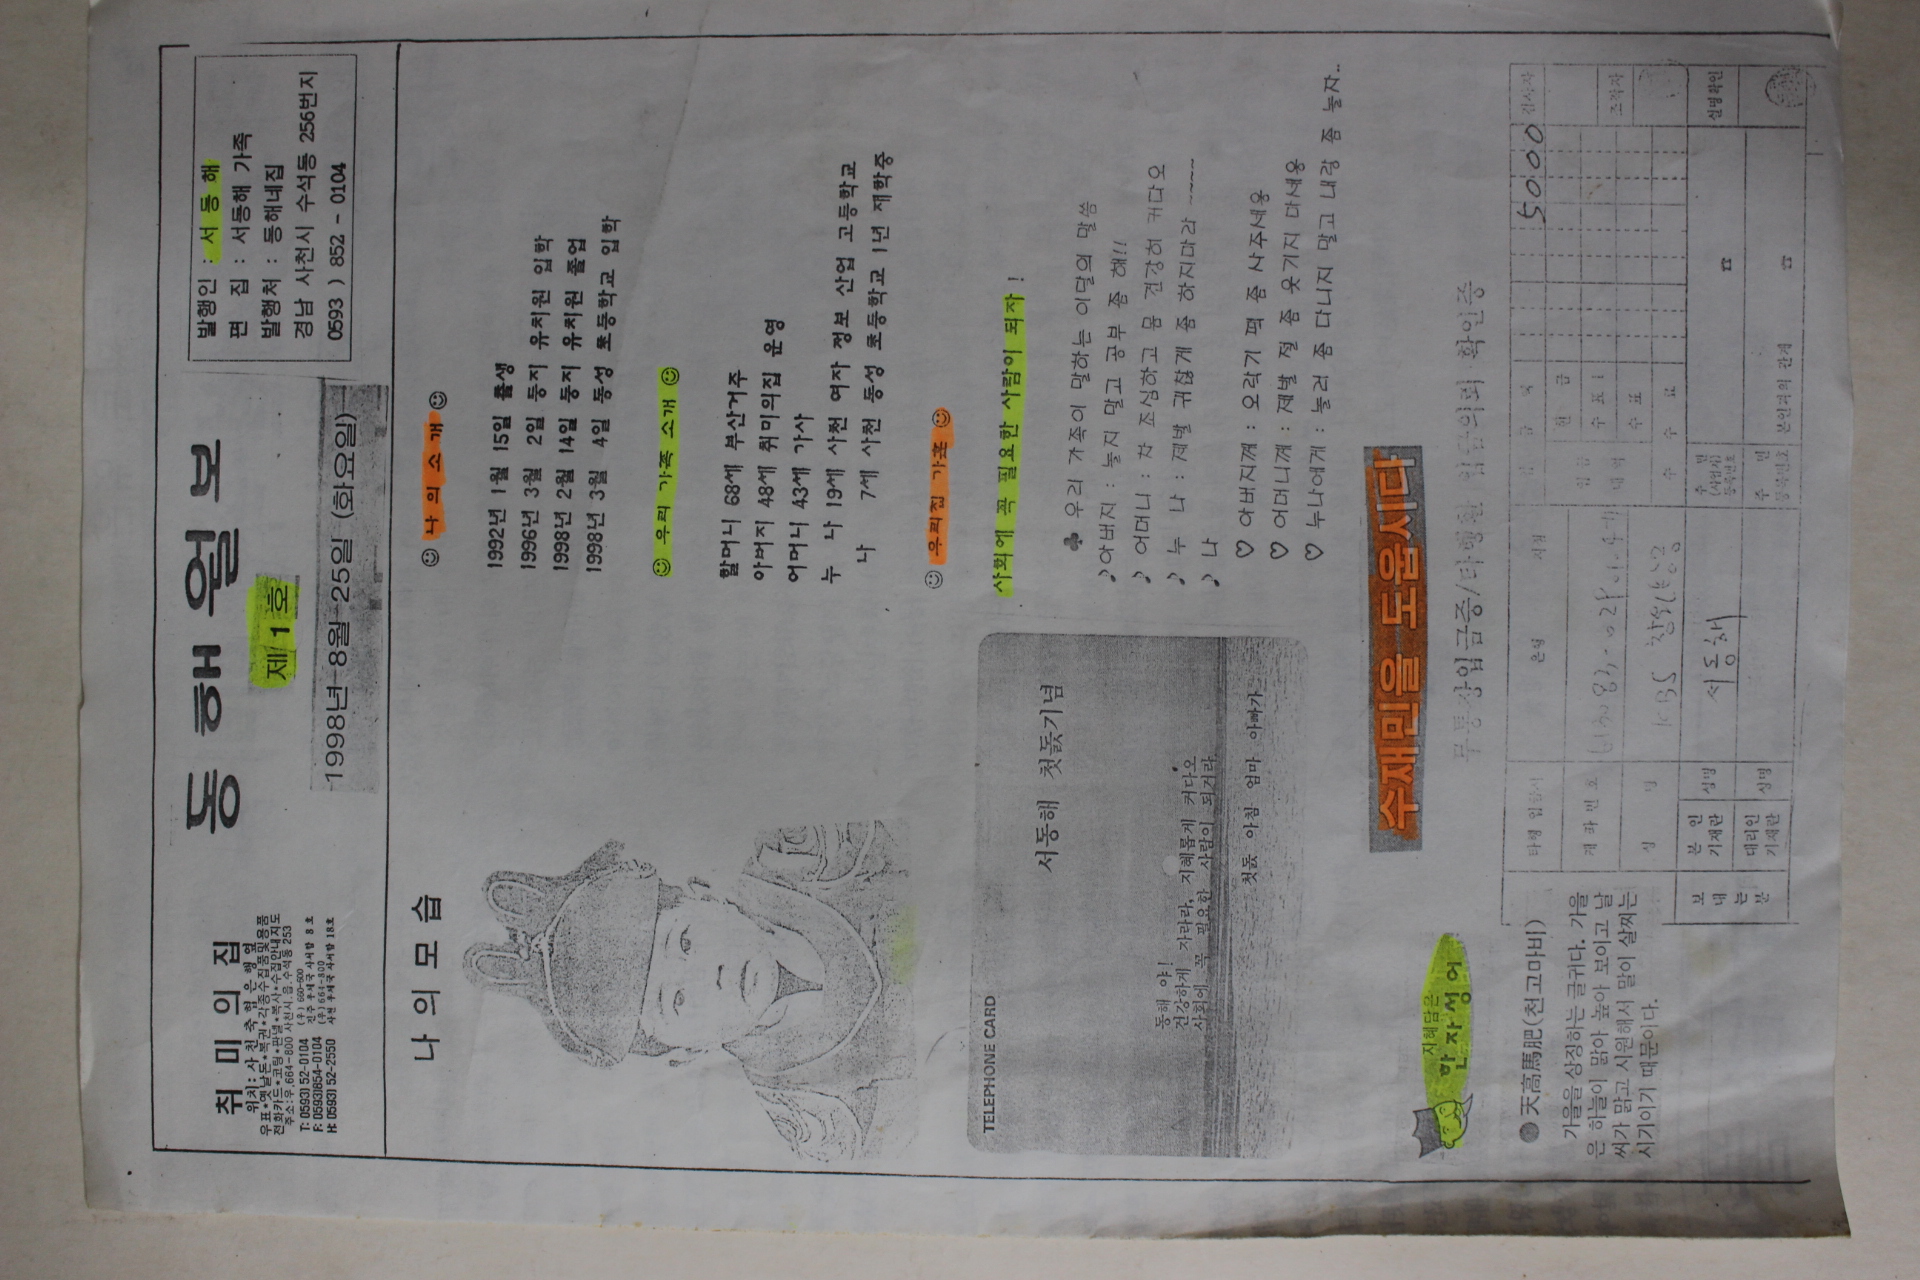 취 미 의 집
위치: 사 천 축 협 은 행 옆
우표*옛날돈*복권*각종수집품및용품
전화카드*코팅*판넬*복사*수집안내지도
주소:우.664-800 사천시.읍.수석동 253
T: 0593) 52-0104 (우) 660-600
진주 우체국 사서함 8 호
F: 0593)854-0104 (우) 664-800
H: 0593) 52-2550 사천 우체국 사서함 18호
동 해 월 보
제 1 호
1998년 8월 25일 (화요일)
발행인 : 서 동 해
편 집 : 서동해 가족
발행처 : 동해네집
경남 사천시 수석동 256번지
0593 ) 852 - 0104
나 의 모 습
나 의 소 개
1992년 1월 15일 출생
1996년 3월 2일 둥지 유치원 입학
1998년 2월 14일 둥지 유치원 졸업
1998년 3월 4일 동성 초등학교 입학
우리 가족 소개
할머니 68세 부산거주
아버지 48세 취미의집 운영
어머니 43세 가사
누 나 19세 사천 여자 정보 산업 고등학교
나 7세 사천 동성 초등학교 1년 재학중
우리집 가훈
사회에 꼭 필요한 사람이 되자 !
TELEPHONE CARD
서동해 첫돐기념
동해 야!
건강하게 자라라, 지혜롭게 커다오
사회에 꼭 필요한 사람이 되거라
첫돐 아침 엄마 아빠가
♣ 우리 가족이 말하는 이달의 말씀
♪아버지 : 놀지 말고 공부 좀 해!!
♪ 어머니 : 차 조심하고 몸 건강히 커다오
♪ 누 나 : 제발 귀찮게 좀 하지마라 ~~~~~
♪ 나
♡ 아버지께 : 오락기 팩 좀 사주세용
♡ 어머니께 : 제발 절 좀 웃기지 마세용
♡ 누나에게 : 놀러 좀 다니지 말고 내랑 좀 놀자..
수재민을 도웁시다
지혜담은
한 자 성 어
● 天高馬肥(천고마비)
가을을 상징하는 글귀다. 가을
은 하늘이 맑아 높아 보이고 날
씨가 맑고 시원해서 말이 살찌는
시기이기 때문이다.
무통장입금증/타행환 입금의뢰 확인증
은행 지점
계 좌 번 호
성 명 KBS
보 내 는 분
본 인 기재란 성명 서동해
대리인 기재란 성명
금 액 5000
현 금
수 표
수 표
수 수 료
입 금 내 역
주 민 (사업자) 등록번호 ☎
주 민 등록번호 본인과의 관계 ☎
실명확인